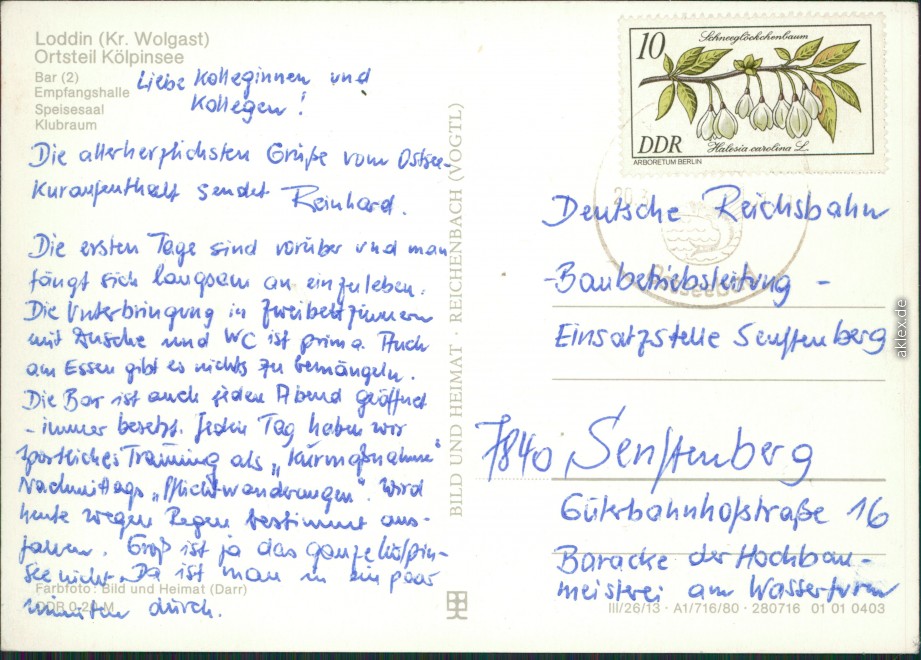 Loddin (Kr. Wolgast)
Ortsteil Kölpinsee
Bar (2)
Empfangshalle
Speisesaal
Klubraum
Liebe Kolleginnen und
Kollegen!
Die allerherzlichsten Grüße vom Ostsee-
Kuraufenthalt sendet Reinhard.
Die ersten Tage sind vorüber und man
fängt sich langsam an einzuleben.
Die Unterbringung in Zweibettzimmern
mit Dusche und WC ist prima. Auch
am Essen gibt es nichts zu bemängeln.
Die Bar ist auch jeden Abend geöffnet
- immer besetzt. Jeden Tag haben wir
sportliches Training als „Kurmaßnahme“
Nachmittags „Pflichtwanderungen“. Wird
heute wegen Regen bestimmt aus-
fallen. Groß ist ja das ganze Kölpin-
see nicht. Da ist man in ein paar
Minuten durch.
Farbfoto: Bild und Heimat (Darr)
DDR 0,20 M
BILD UND HEIMAT · REICHENBACH (VOGTL)
10
Schneeglöckchenbaum
DDR
Halesia carolina L.
ARBORETUM BERLIN
Deutsche Reichsbahn
-Baubetriebsleitung -
Einsatzstelle Senftenberg
7840 Senftenberg
Güterbahnhofstraße 16
Baracke der Hochbau-
meisterei am Wasserturm
III/26/13 · A1/716/80 · 280716 01 01 0403
aklex.de